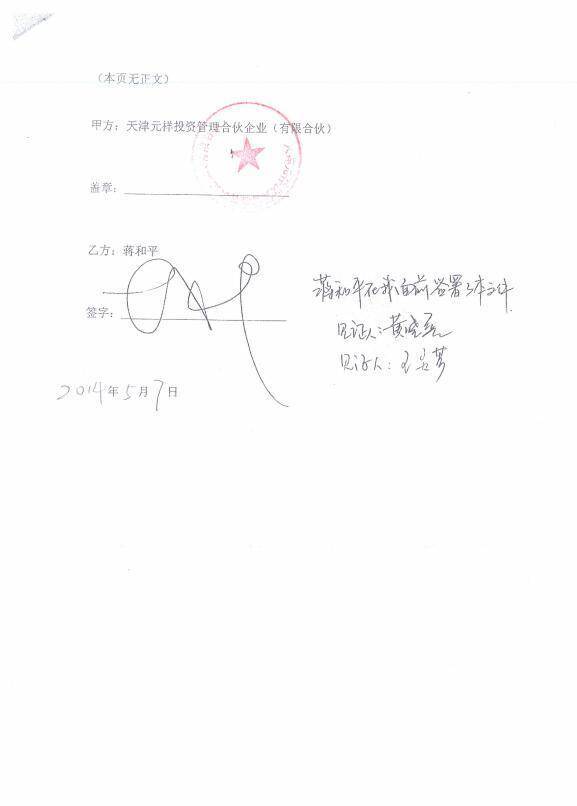 （本页无正文）
甲方：天津元祥投资管理合伙企业（有限合伙）
盖章：
乙方：蒋和平
签字：
蒋和平在我面前签署了本文件
见证人：黄
见证人：王
2014年5月7日